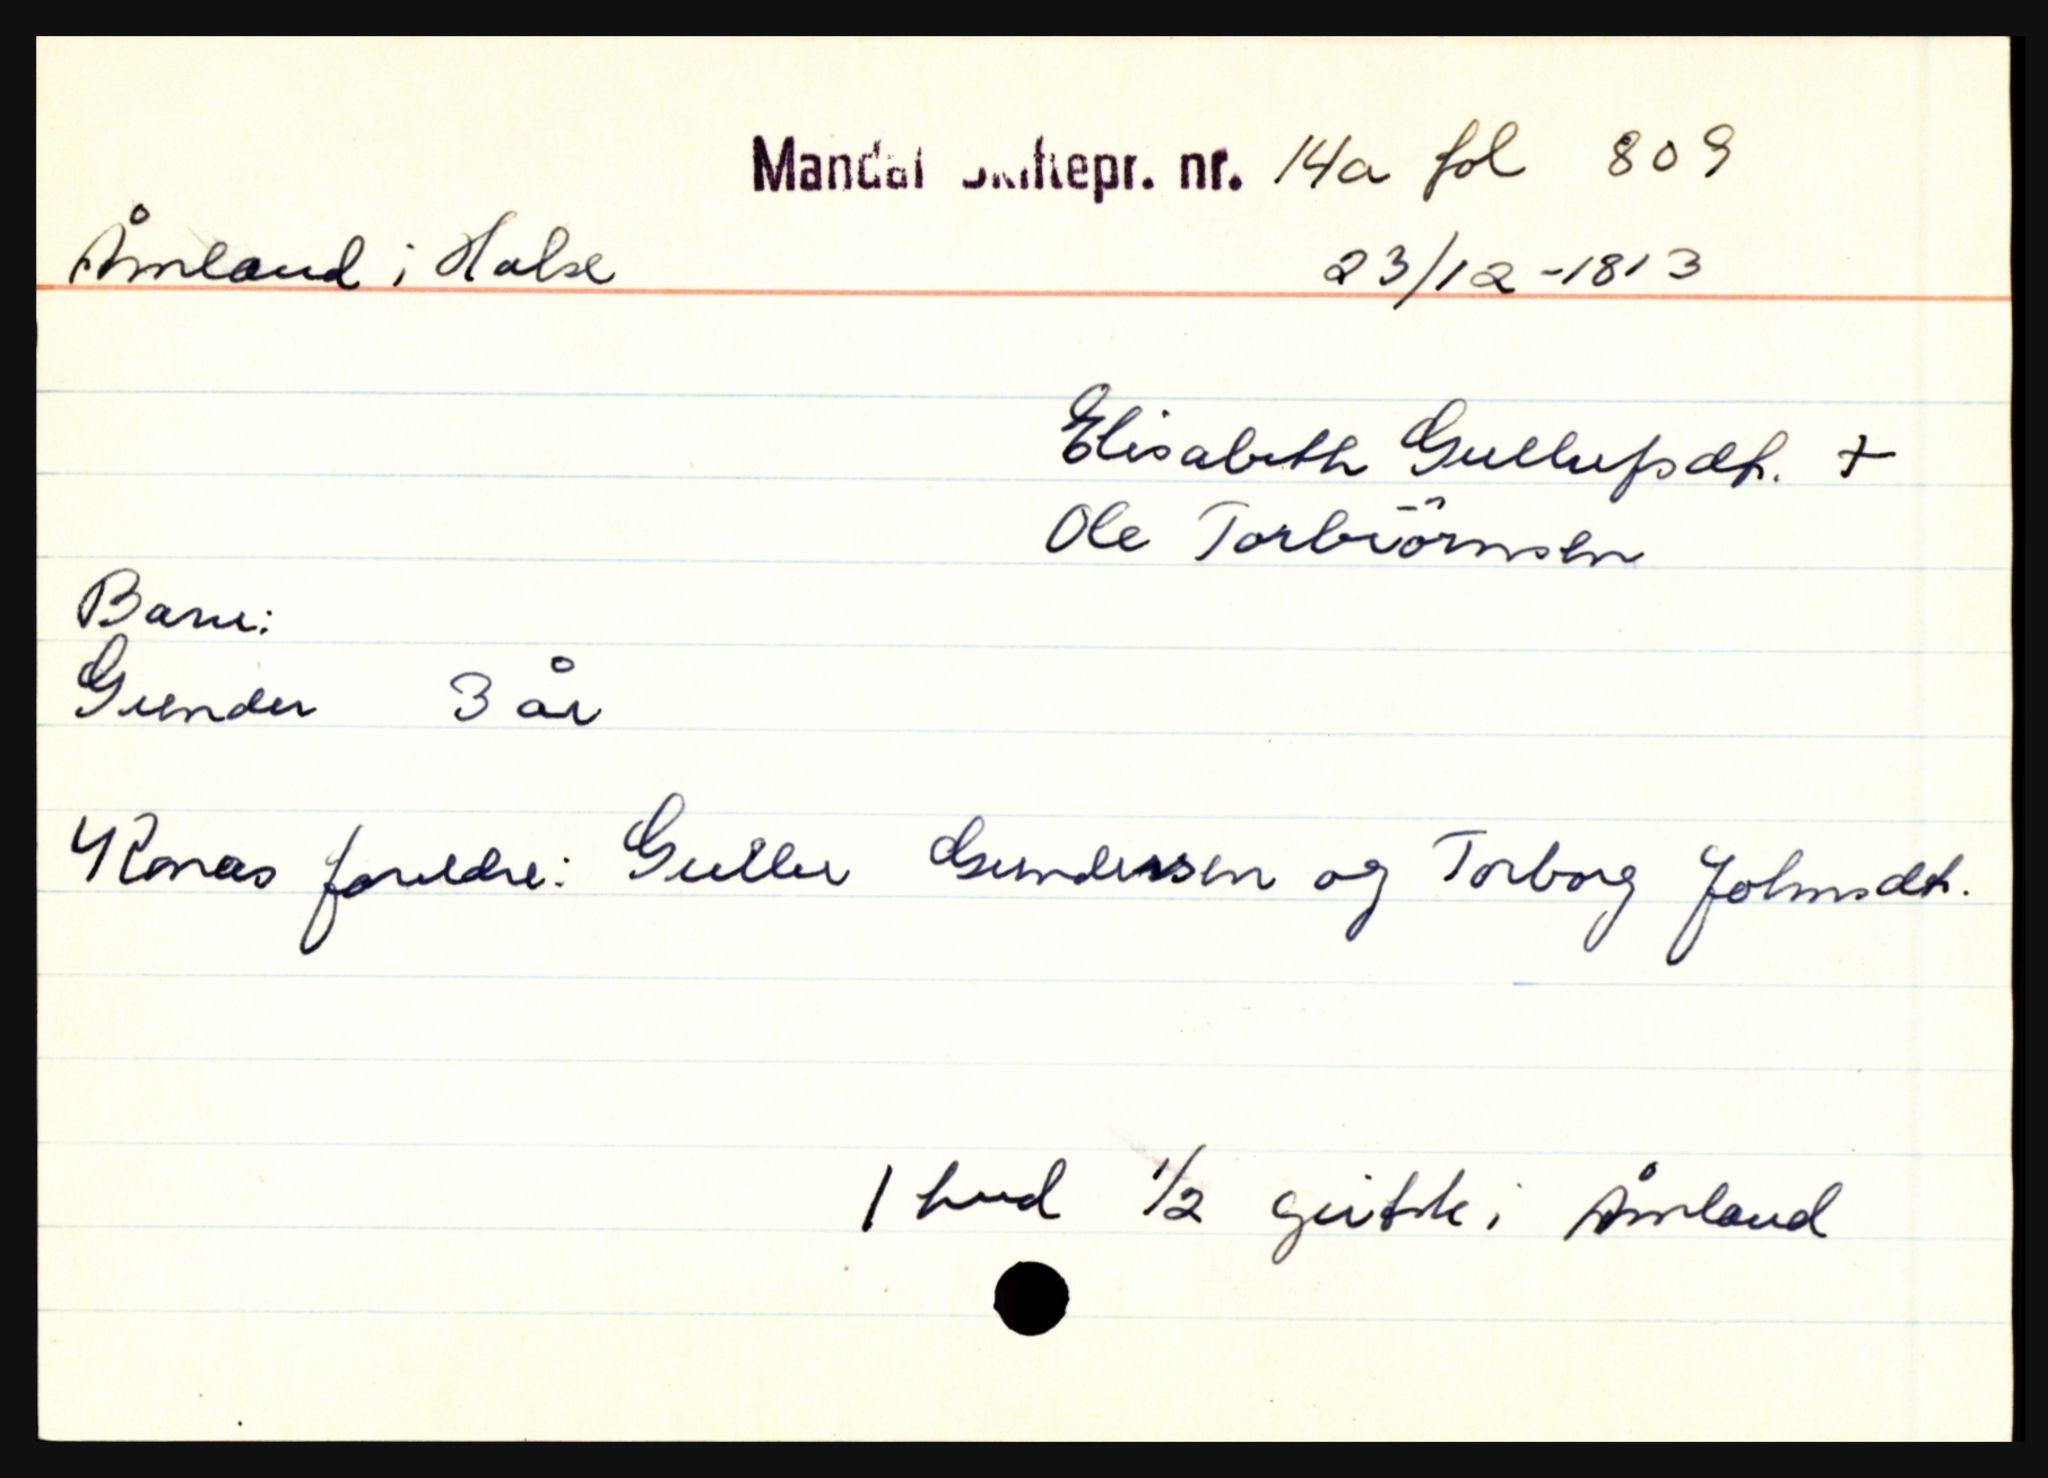 Mandal Skiftepr. nr. 14a fol 809
Åmland i Halse 23/12-1813
Elisabeth Gullufsdt. +
Ole Torbiörnsen
Barn:
Gunder 3 år
Konas foreldre: Gulluf Gundersen og Torborg Johnsdt.
1 hud 1/2 geitsk i Åmland